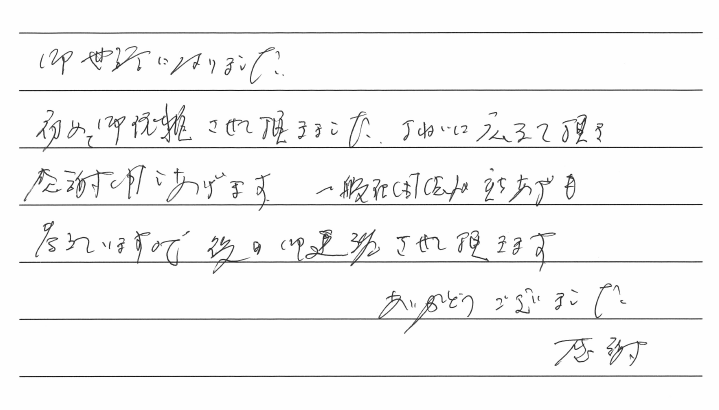 御世話になりました。
初めて御依頼させて頂きました。ていねいに応えて頂き
感謝申しあげます。一般社団法人の立ちあげも
考えていますので後日御連絡させて頂きます
ありがとうございました。
感謝